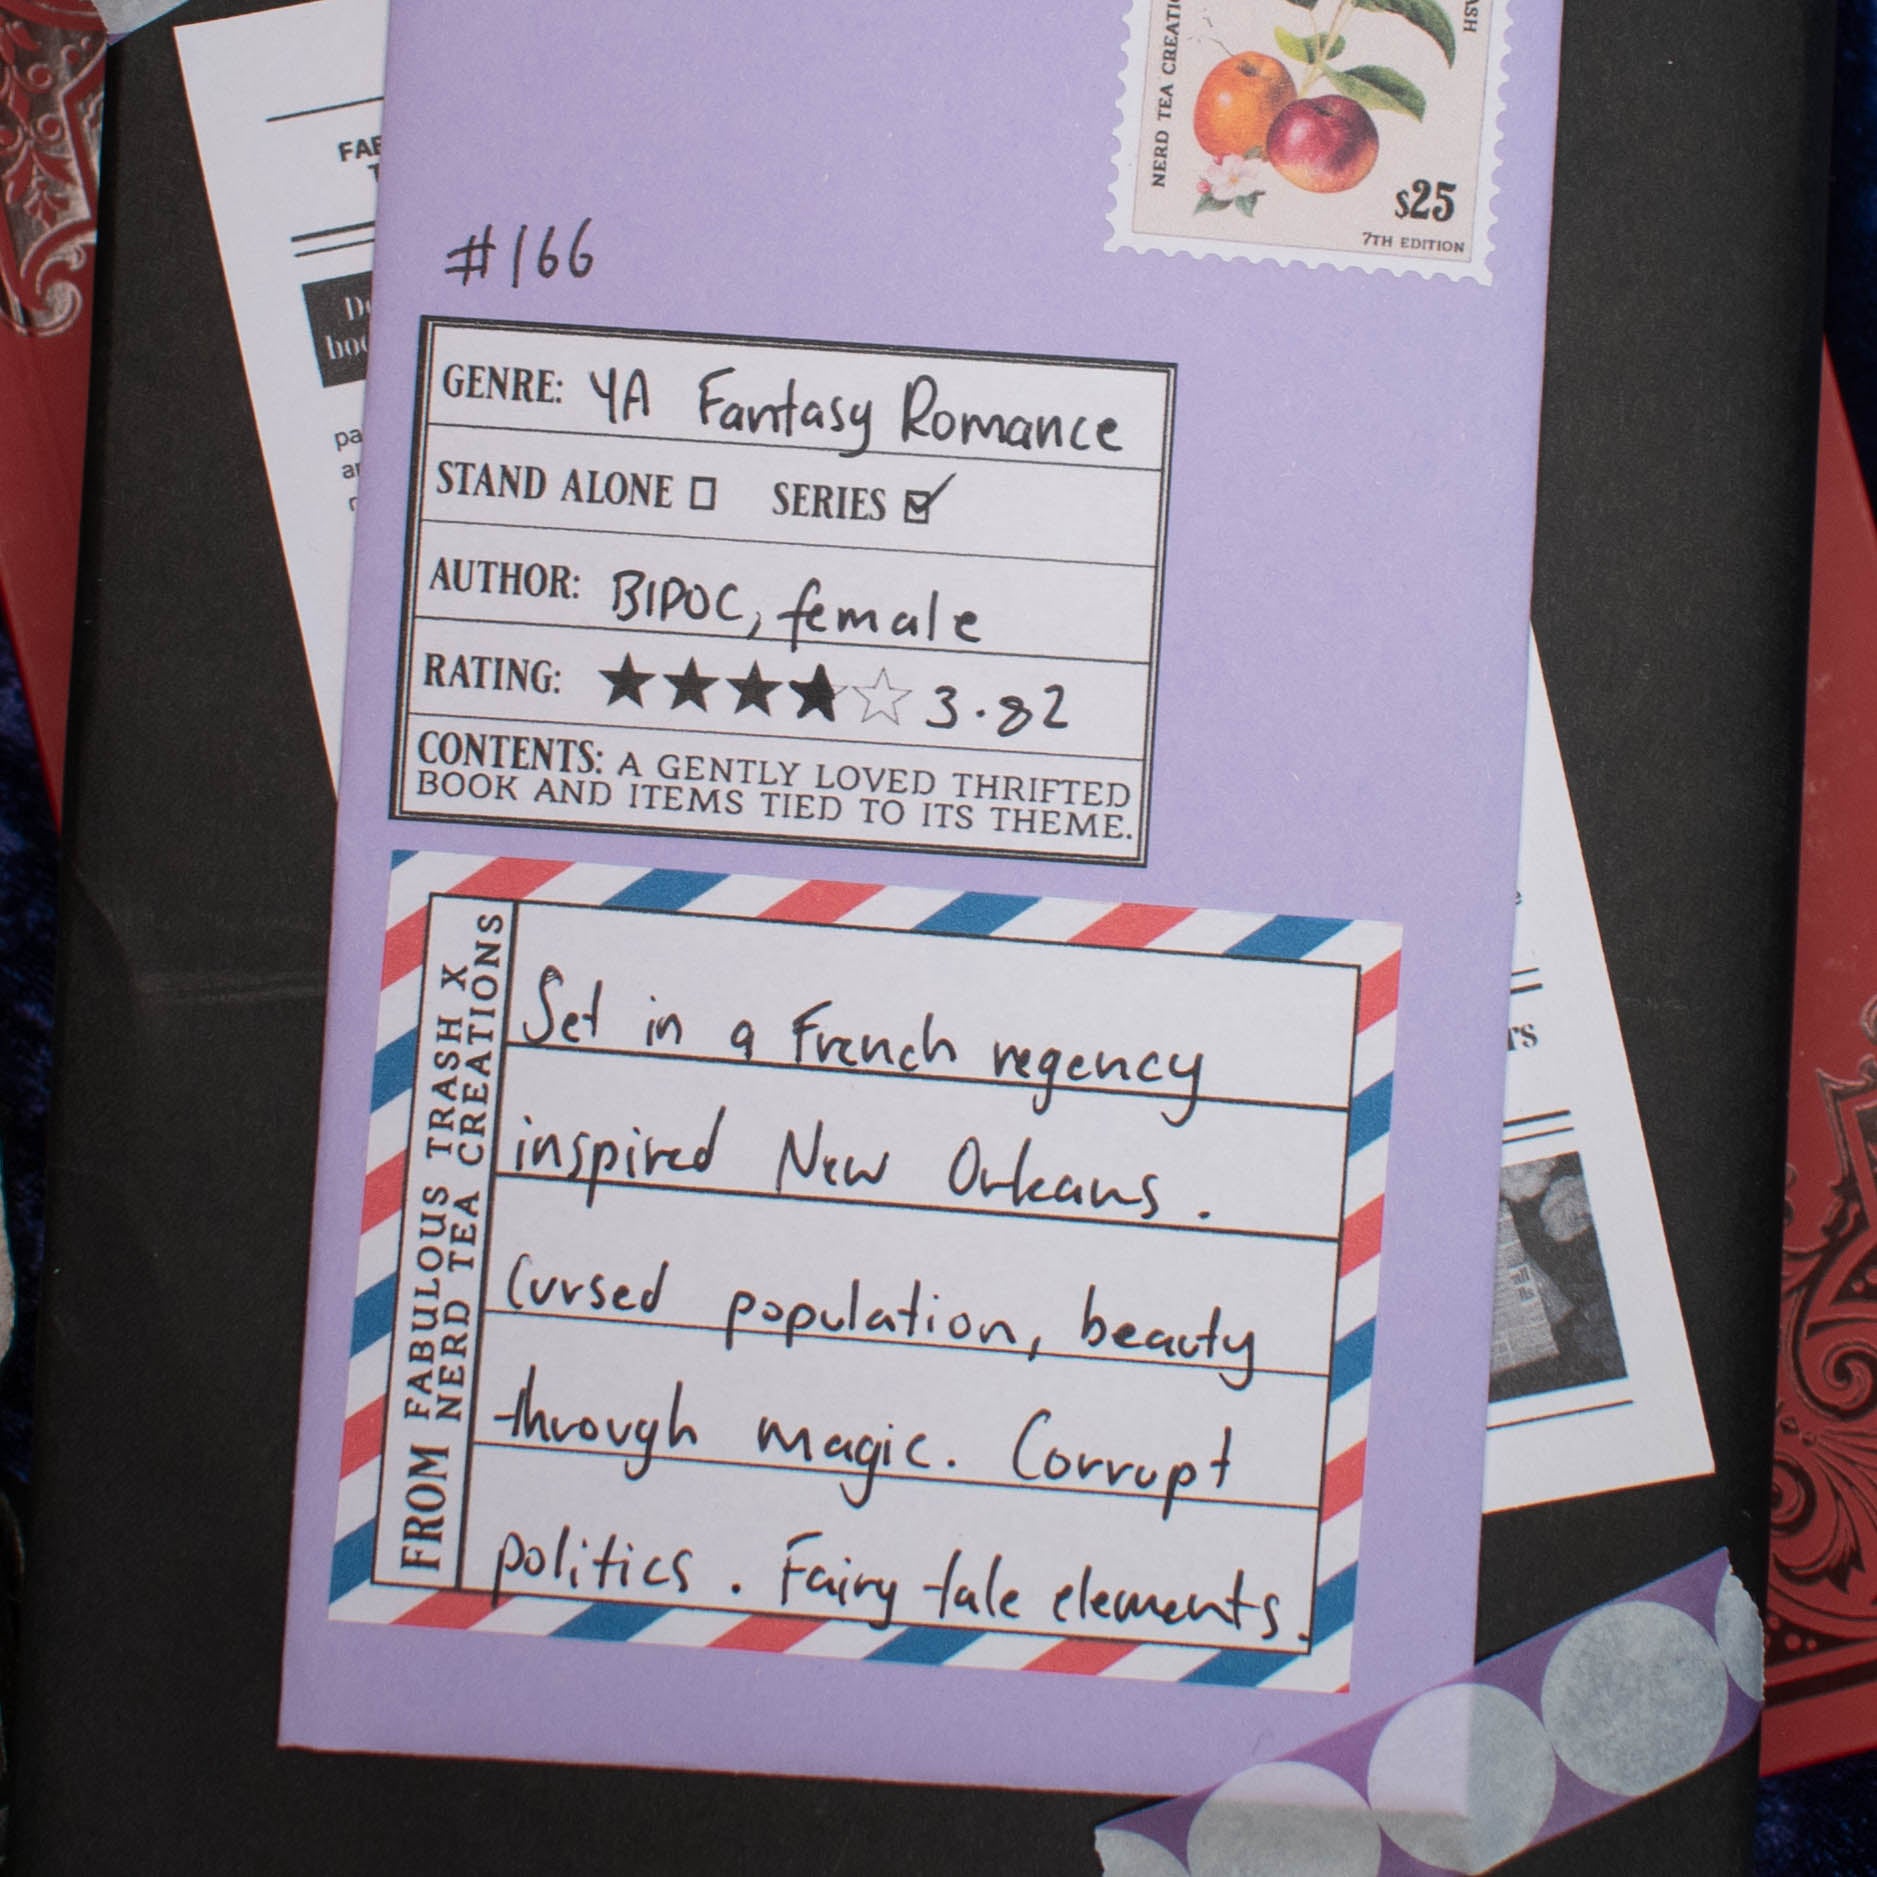 NERD TEA CREATI
ASH
$25
7TH EDITION
FAB
#166
GENRE: YA Fantasy Romance
STAND ALONE SERIES
AUTHOR: BIPOC, female
RATING: 3.82
CONTENTS: A GENTLY LOVED THRIFTED
BOOK AND ITEMS TIED TO ITS THEME.
FROM FABULOUS TRASH X
NERD TEA CREATIONS
Set in a French regency
inspired New Orleans.
Cursed population, beauty
through magic. Corrupt
politics. Fairy tale elements.